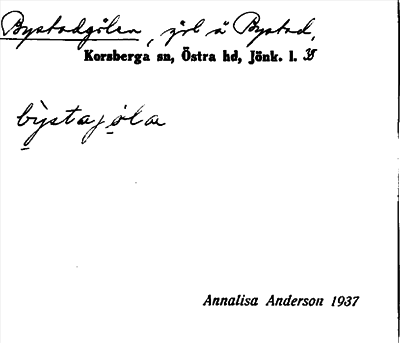 Bystadgölen, göl å Bystad,
Korsberga sn, Östra hd, Jönk. l.
bystajøla
Annalisa Anderson 1937